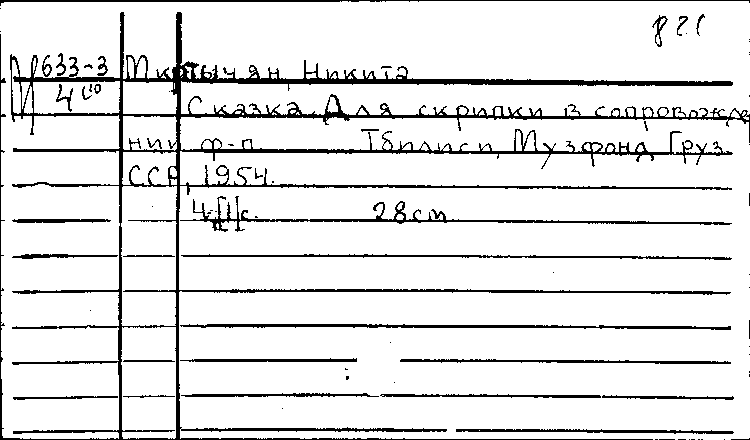 821
М 633-3 Мкртычян, Никита
4 Сказка. Для скрипки в сопровожде
нии ф-п Тбилиси, Музфонд Груз.
ССР, 1954.
28 cm